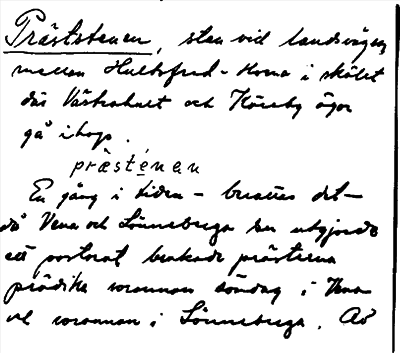 Präststenen, sten vid landsvägen
mellan Hultsfred - Vena i skälet
där Västrahult och Köreby ägor
gå ihop.
præsténan
En gång i tiden - berättes det -
då Vena och Lönneberga än utgjorde
ett pastorat brukade prästerna
prädika varannan söndag i Vena
och varannan i Lönneberga. Av